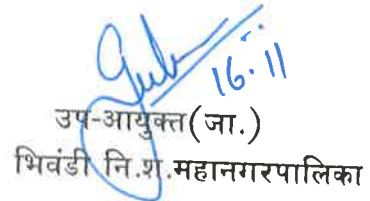 16.11
उप-आयुक्त(जा.)
भिवंडी नि.श.महानगरपालिका